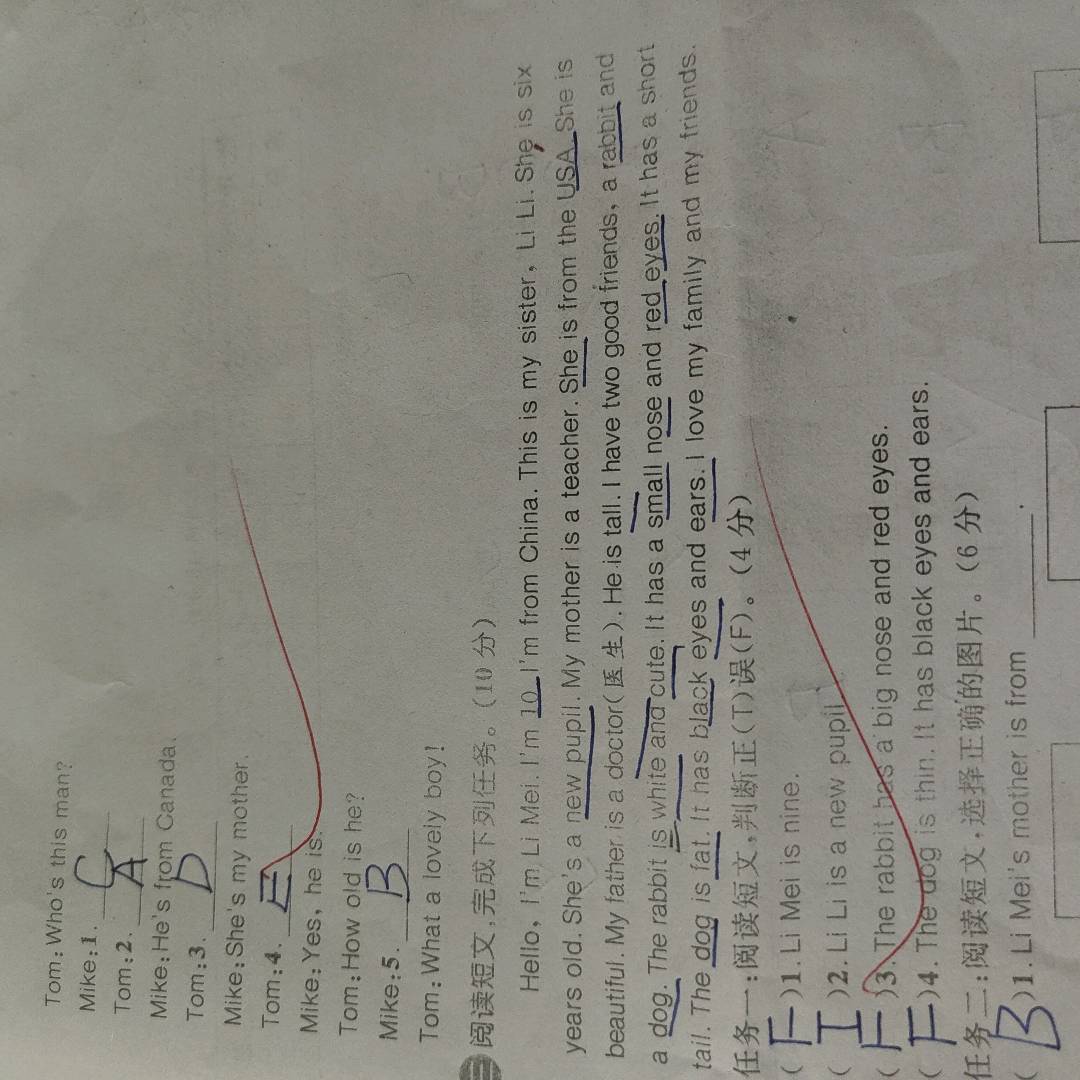 Tom: Who's this man?
Mike: 1. C
Tom: 2. A
Mike: He's from Canada.
Tom: 3. D
Mike: She's my mother.
Tom: 4. E
Mike: Yes, he is.
Tom: How old is he?
Mike: 5. B
Tom: What a lovely boy!
三 阅读短文,完成下列任务。(10分)
Hello, I'm Li Mei. I'm 10. I'm from China. This is my sister, Li Li. She is six
years old. She's a new pupil. My mother is a teacher. She is from the USA. She is
beautiful. My father is a doctor(医生). He is tall. I have two good friends, a rabbit and
a dog. The rabbit is white and cute. It has a small nose and red eyes. It has a short
tail. The dog is fat. It has black eyes and ears. I love my family and my friends.
任务一:阅读短文,判断正(T)误(F)。(4分)
( F )1. Li Mei is nine.
( T )2. Li Li is a new pupil.
( F )3 The rabbit has a big nose and red eyes.
( F )4. The dog is thin. It has black eyes and ears.
任务二:阅读短文,选择正确的图片。(6分)
( B )1. Li Mei's mother is from ______.